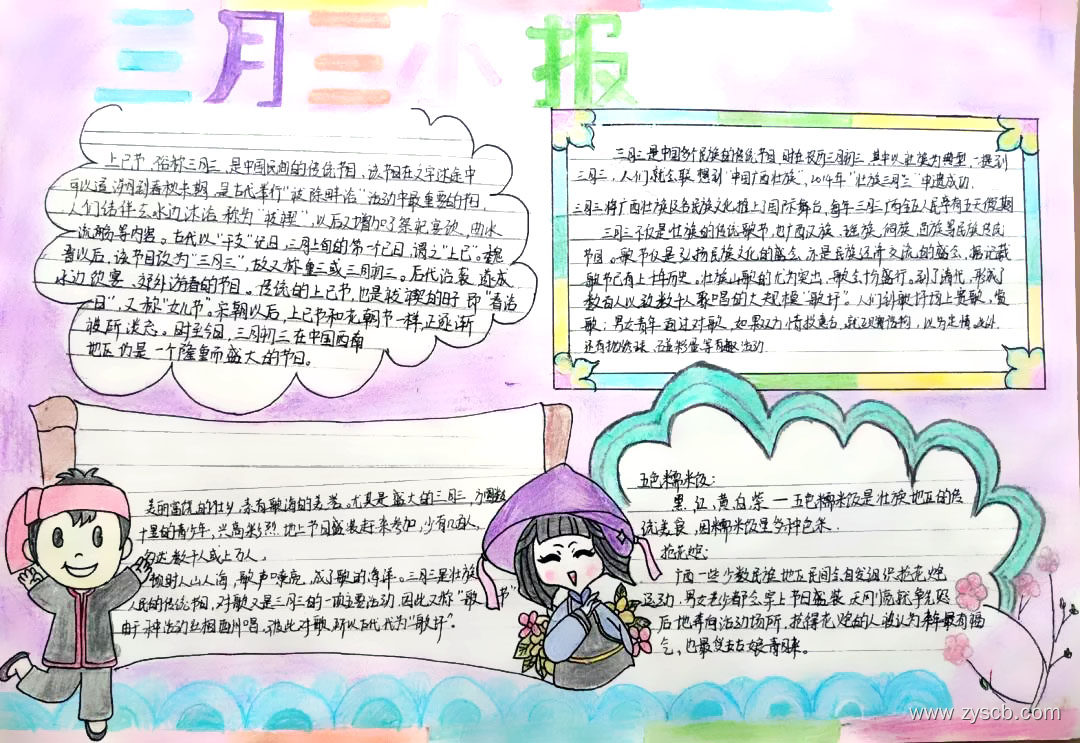 三月三小报
上巳节,俗称三月三,是中国民间的传统节日,该节日在文字记述中
可以追溯到春秋末期,是古代举行"祓除畔浴"活动中最重要的节日,
人们结伴去水边沐浴,称为"祓禊",以后又增加了祭祀宴饮、曲水
流觞等内容。古代以"干支"纪日,三月上旬的第一个巳日,谓之"上巳"。魏
晋以后,该节日改为"三月三",故又称重三或三月初三。后代沿袭,遂成
水边饮宴、郊外游春的节日。传统的上巳节,也是祓禊的日子,即"春浴
日",又称"女儿节"。宋朝以后,上巳节和花朝节一样,正逐渐
被所淡忘。时至今日,三月初三在中国西南
地区仍是一个隆重而盛大的节日。
三月三是中国多个民族的传统节日,时在农历三月初三,其中以壮族为典型,一提到
三月三,人们就会联想到"中国广西壮族",2014年"壮族三月三"申遗成功.
三月三将广西壮族及各民族文化推上了国际舞台,每年三月三广西全区人民享有五天假期
三月三不仅是壮族的传统歌节,也广西汉族、瑶族、侗族、苗族等民族及民
节日。歌节仅是弘扬民族文化的盛会,亦是民族经济交流的盛会,据记载
歌节已有上千年历史。壮族山歌的尤为突出,歌会十分盛行。到了清代,形成了
数百人以致数千人聚唱的大规模"歌圩"。人们到歌圩场上赛歌、赏
歌;男女青年通过对歌,如果双方情投意合,就互赠信物,以为定情
还有抛绣球、碰彩蛋等有趣活动.
美丽富饶的壮乡,素有歌海的美誉。尤其是盛大的三月三,方圆数
十里的青少年,兴高采烈地上节日盛装赶来参加,少有几百人,
多达数千人或上万人。
那时人山人海,歌声嘹亮,成了歌的海洋。三月三是壮族
人民的传统节日,对歌又是三月三的一项主要活动,因此又称"歌节"
由于种活动丝相西川唱。彼此对歌,所以古代称为"歌圩"。
五色糯米饭:
黑、红、黄、白、紫一五色糯米饭是壮族地区的传
统美食,因糯米饭呈多种色采.
抢花炮:
广西一些少数民族地区民间会自发组织抢花炮
活动.男女老少都会穿上节日盛装,天刚亮就争先恐
后地奔向活动场所,抢得花炮的人被认为来年最有福
气,也最受姑娘青睐。
www.zyscb.com